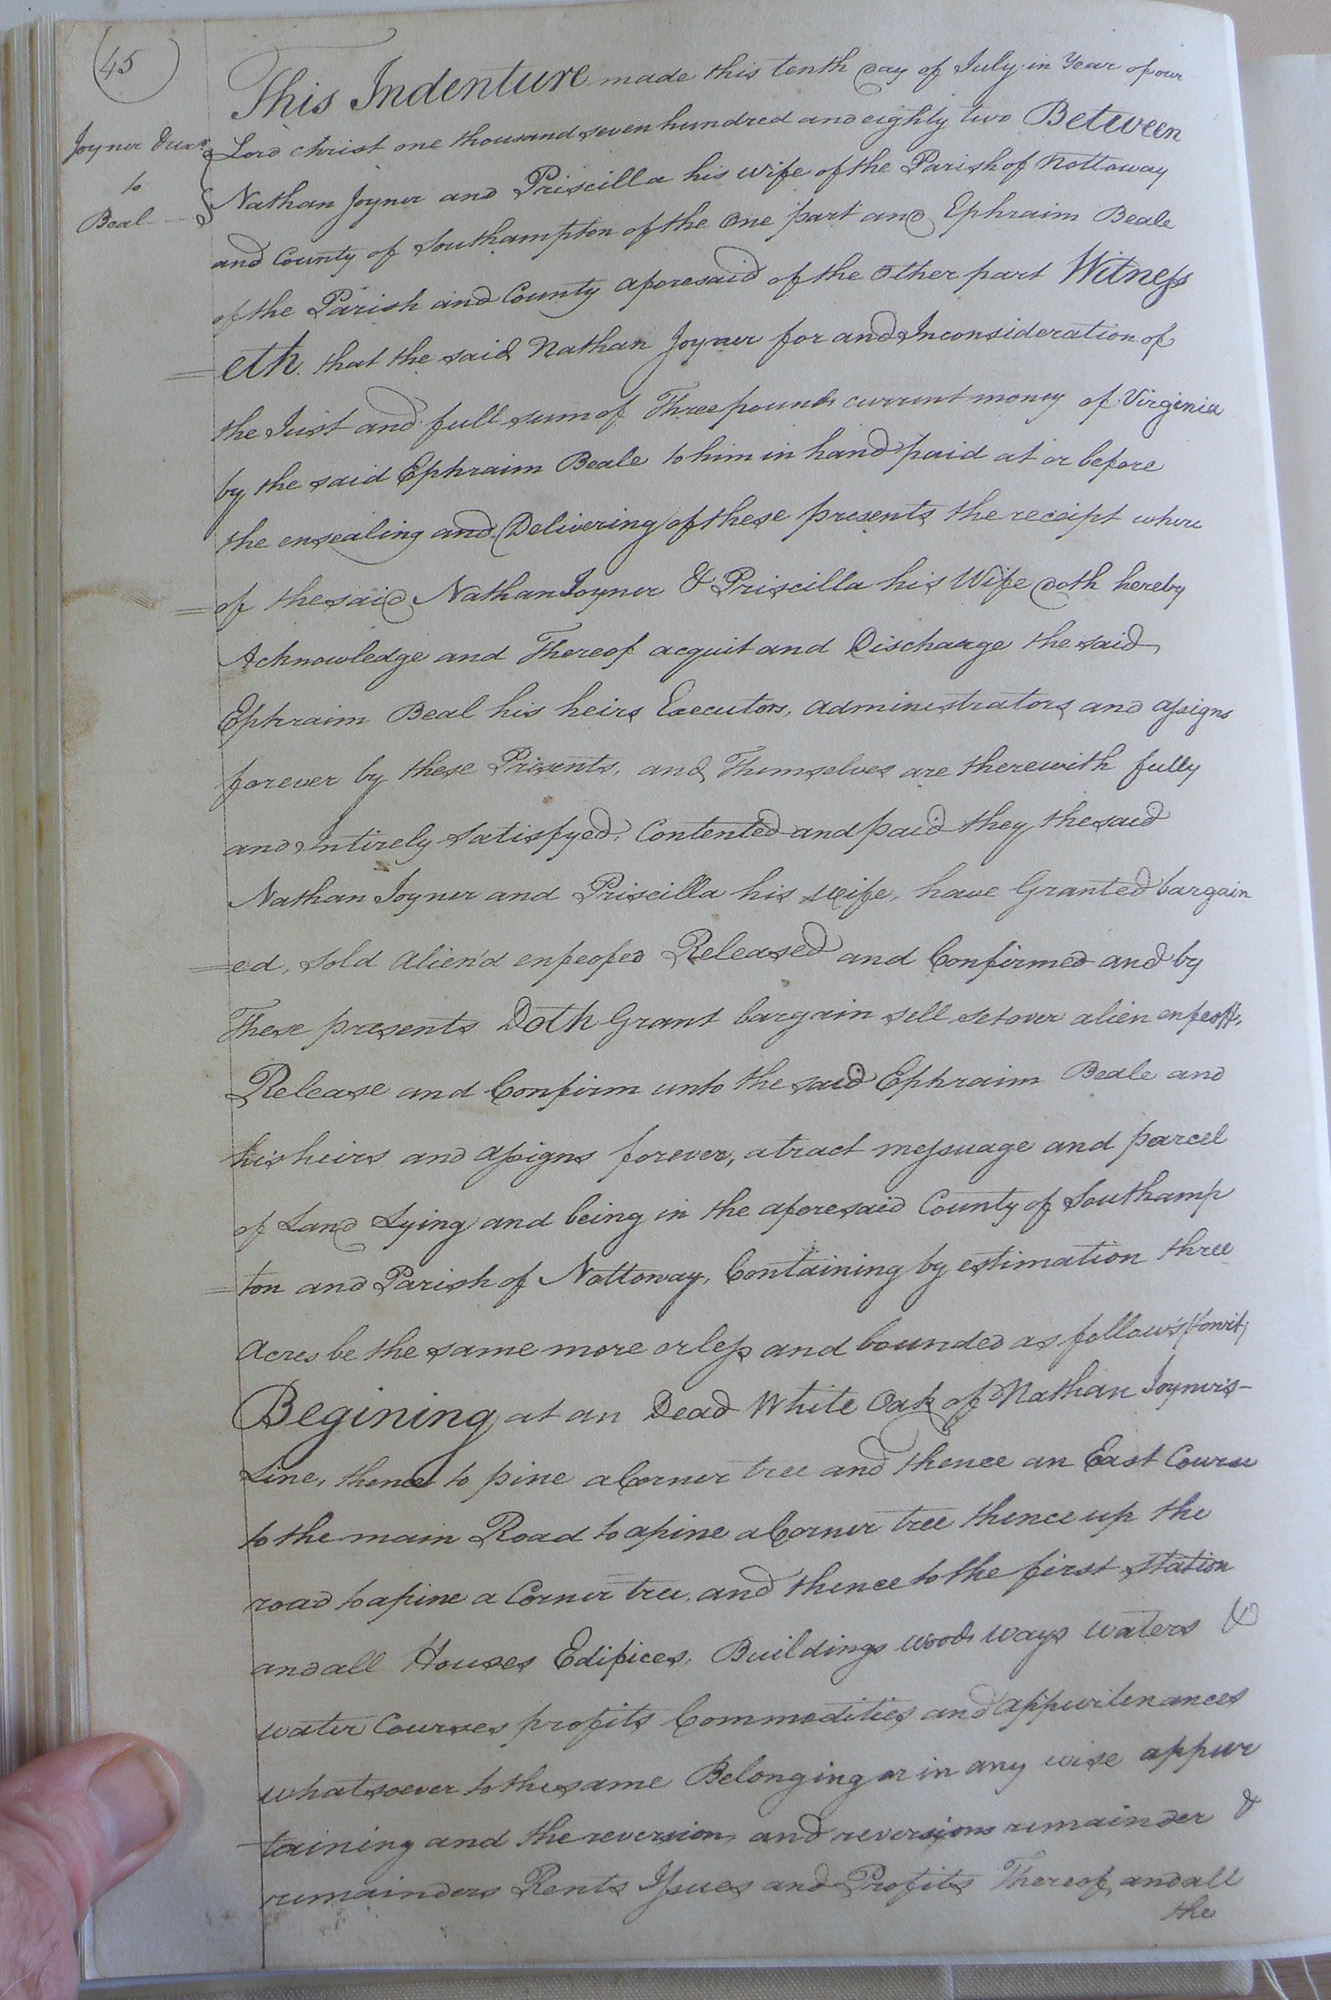 45
Joyner &
to
Beal
This Indenture made this tenth Day of July in Year of our
Lord Christ one thousand seven hundred and eighty two Between
Nathan Joyner and Priscilla his wife of the Parish of Nottoway
and County of Southampton of the one part and Ephraim Beale
of the Parish and County aforesaid of the other part Witness
=eth. that the said Nathan Joyner for and Inconsideration of
the Just and full sum of Three pounds current money of Virginia
by the said Ephraim Beale to him in hand paid at or before
the ensealing and Delivering of these presents the receipt where
=of the said Nathan Joyner & Priscilla his Wife doth hereby
Acknowledge and Thereof acquit and Discharge the said
Ephraim Beal his heirs Executors, administrators and assigns
forever by these Presents, and Themselves are therewith fully
and Intirely Satisfyed, Contented and paid they the said
Nathan Joyner and Priscilla his wife, have Granted bargain
=ed, sold alien'd enfeofed Released and Confirmed and by
These presents Doth Grant bargain sell setover alien enfeoff,
Release and Confirm unto the said Ephraim Beale and
his heirs and assigns forever, a tract messuage and parcel
of Land Lying and being in the aforesaid County of Southamp
=ton and Parish of Nottoway, Containing by estimation three
Acres be the same more or less and bounded as follows (towit)
Begining at an Dead White Oak of Nathan Joyners-
Line, thence to pine a Corner tree and thence an East Course
to the main Road to a pine a Corner tree thence up the
road to a pine a Corner tree, and thence to the first station
and all Houses Edifices, Buildings woods ways waters &
water Courses profits Commodities and appurtenances
whatsoever to the same Belonging or in any wise appur
taining and the reversion and reversions remainder &
remainders Rents Issues and Profits Thereof, and all
the